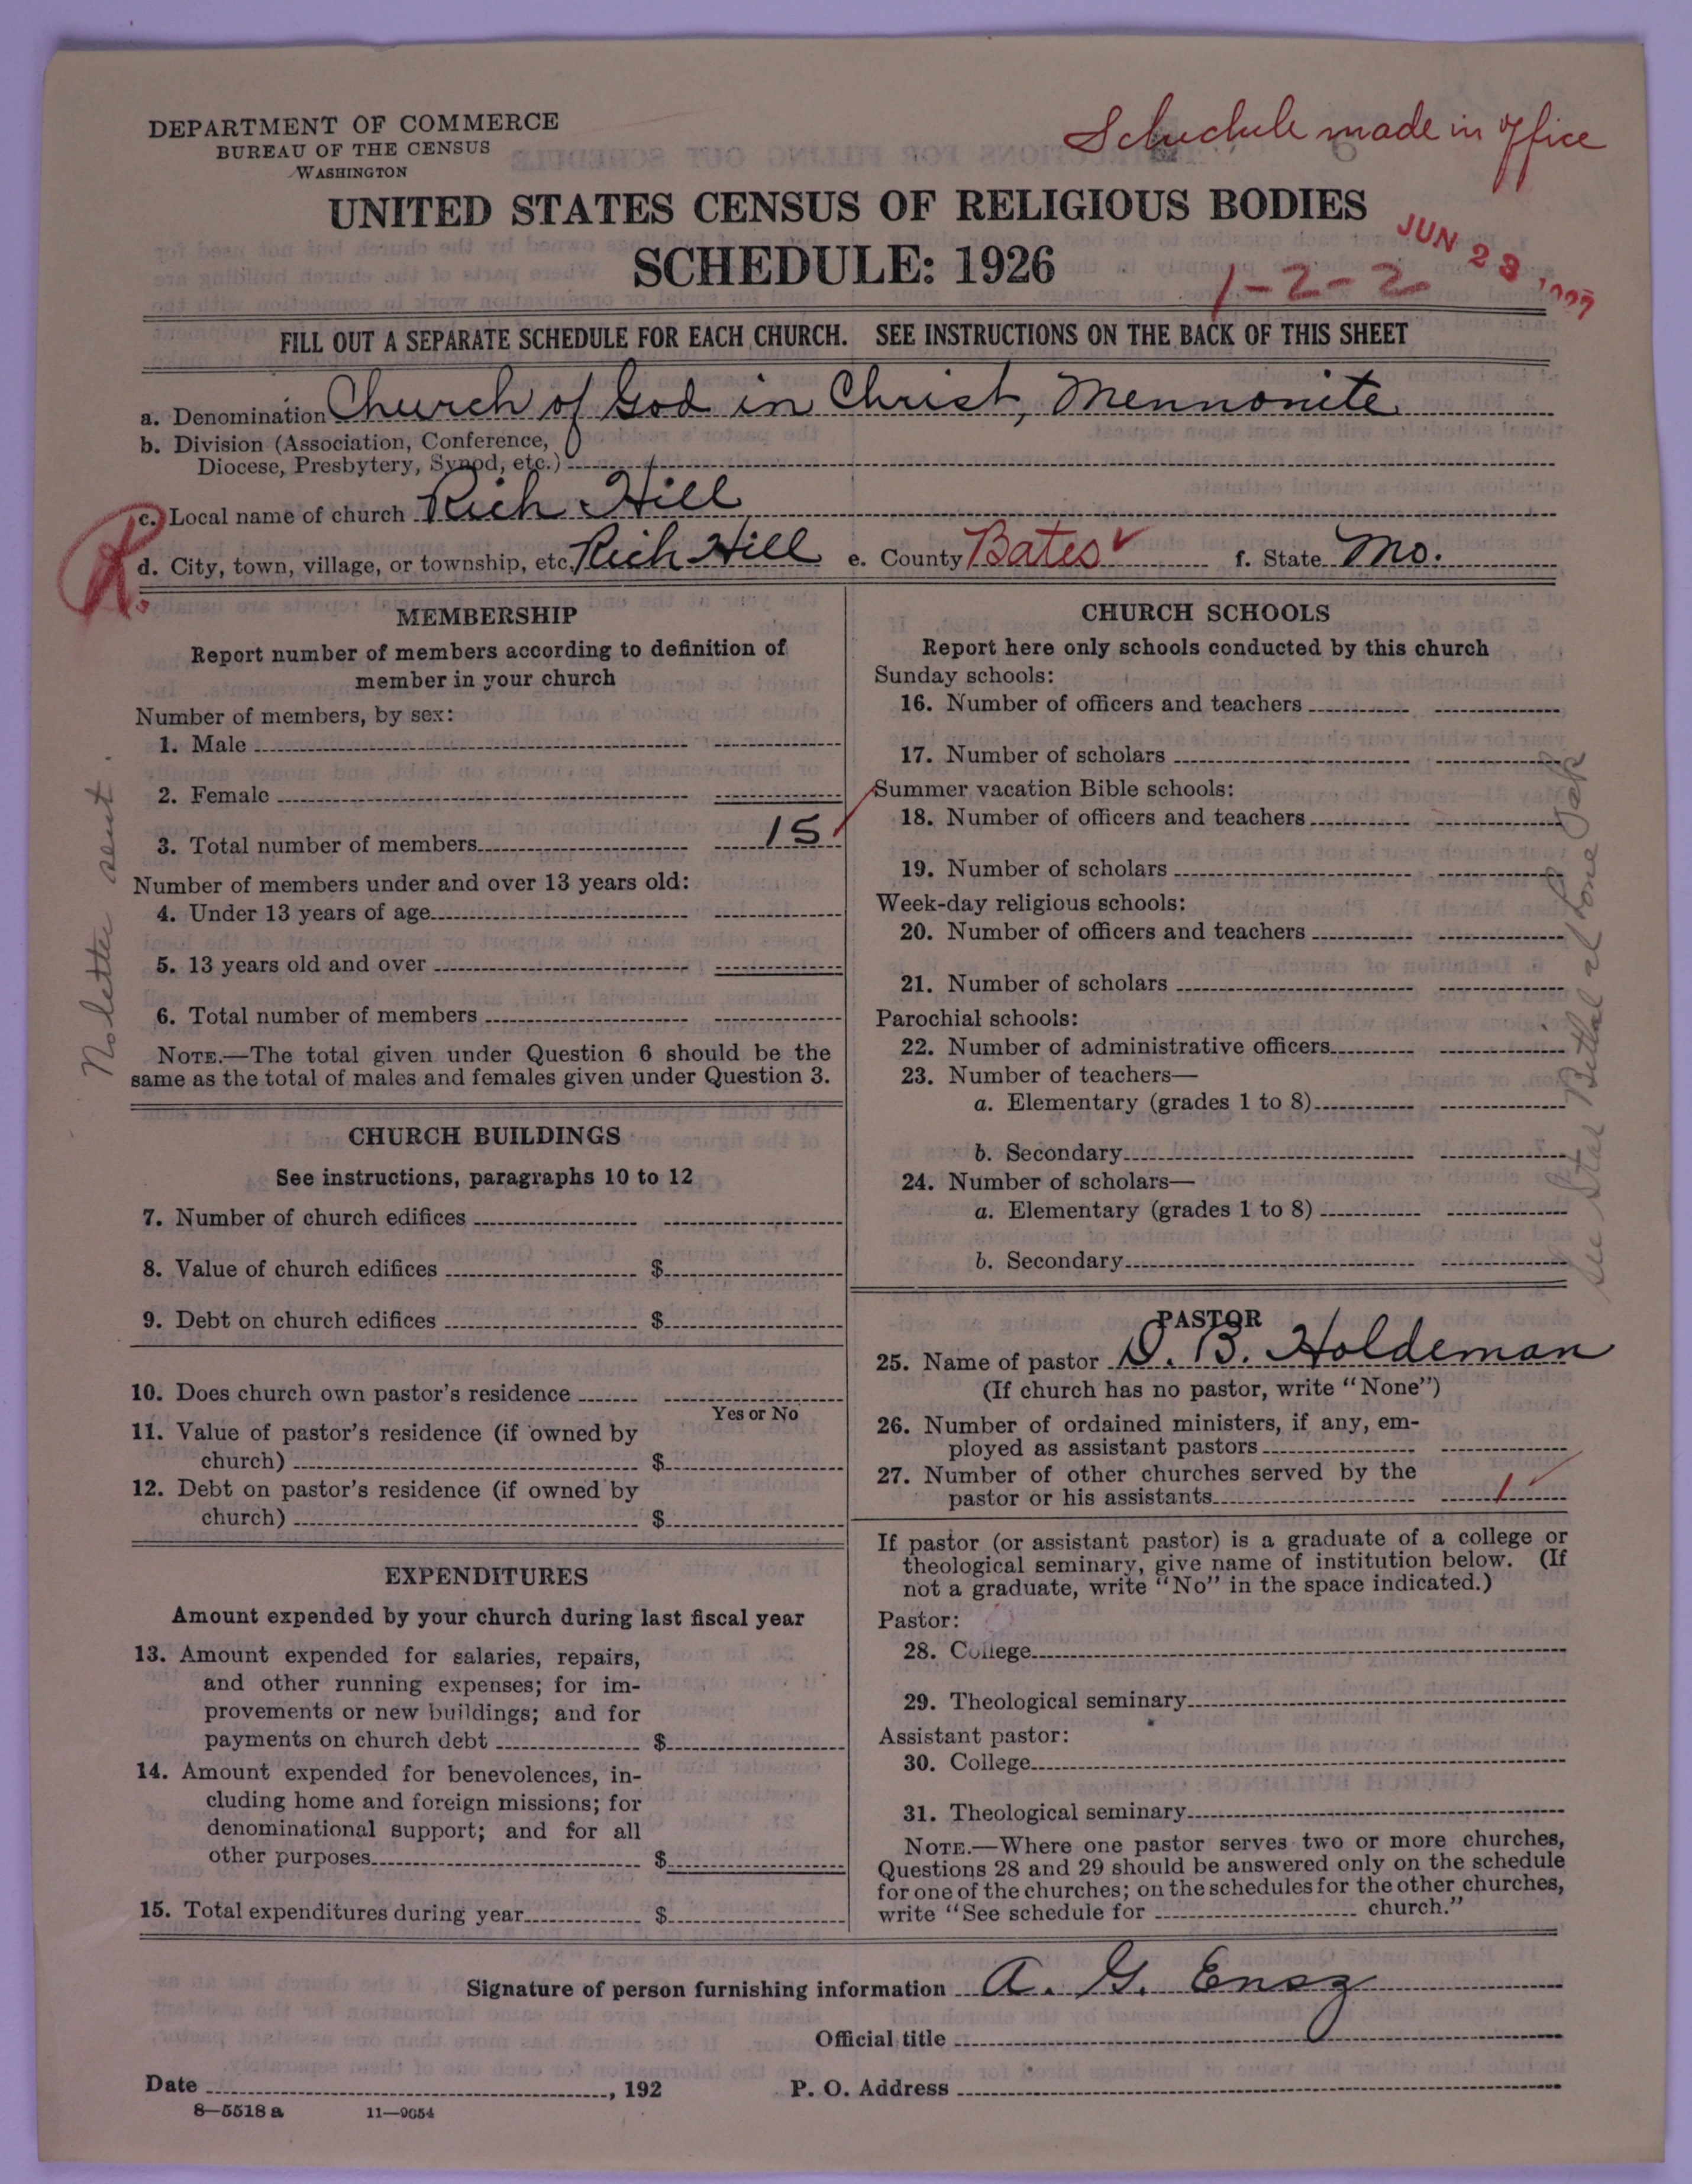 DEPARTMENT OF COMMERCE
BUREAU OF THE CENSUS
WASHINGTON
Schedule made in office
UNITED STATES CENSUS OF RELIGIOUS BODIES
SCHEDULE: 1926
JUN 23 1927
1-2-2
FILL OUT A SEPARATE SCHEDULE FOR EACH CHURCH. SEE INSTRUCTIONS ON THE BACK OF THIS SHEET
a. Denomination Church of God in Christ, Mennonite
b. Division (Association, Conference,
Diocese, Presbytery, Synod, etc.)
c. Local name of church Rich Hill
R.
d. City, town, village, or township, etc. Rich Hill e. County Bates f. State Mo.
MEMBERSHIP
Report number of members according to definition of
member in your church
Number of members, by sex:
1. Male
2. Female
3. Total number of members 15
Number of members under and over 13 years old:
4. Under 13 years of age
5. 13 years old and over
6. Total number of members
NOTE.—The total given under Question 6 should be the
same as the total of males and females given under Question 3.
No letter sent.
CHURCH BUILDINGS
See instructions, paragraphs 10 to 12
7. Number of church edifices
8. Value of church edifices $
9. Debt on church edifices $
10. Does church own pastor's residence
Yes or No
11. Value of pastor's residence (if owned by
church) $
12. Debt on pastor's residence (if owned by
church) $
EXPENDITURES
Amount expended by your church during last fiscal year
13. Amount expended for salaries, repairs,
and other running expenses; for im-
provements or new buildings; and for
payments on church debt $
14. Amount expended for benevolences, in-
cluding home and foreign missions; for
denominational support; and for all
other purposes $
15. Total expenditures during year $
CHURCH SCHOOLS
Report here only schools conducted by this church
Sunday schools:
16. Number of officers and teachers
17. Number of scholars
Summer vacation Bible schools:
18. Number of officers and teachers
19. Number of scholars
Week-day religious schools:
20. Number of officers and teachers
21. Number of scholars
Parochial schools:
22. Number of administrative officers
23. Number of teachers—
a. Elementary (grades 1 to 8)
b. Secondary
24. Number of scholars—
a. Elementary (grades 1 to 8)
b. Secondary
See Bethal at Lone Oak
PASTOR
25. Name of pastor D. B. Holdeman
(If church has no pastor, write "None")
26. Number of ordained ministers, if any, em-
ployed as assistant pastors
27. Number of other churches served by the
pastor or his assistants 1
If pastor (or assistant pastor) is a graduate of a college or
theological seminary, give name of institution below. (If
not a graduate, write "No" in the space indicated.)
Pastor:
28. College
29. Theological seminary
Assistant pastor:
30. College
31. Theological seminary
NOTE.—Where one pastor serves two or more churches,
Questions 28 and 29 should be answered only on the schedule
for one of the churches; on the schedules for the other churches,
write "See schedule for church."
Signature of person furnishing information A. G. Ensz
Official title
Date , 192
P. O. Address
8—5518 a 11—9054